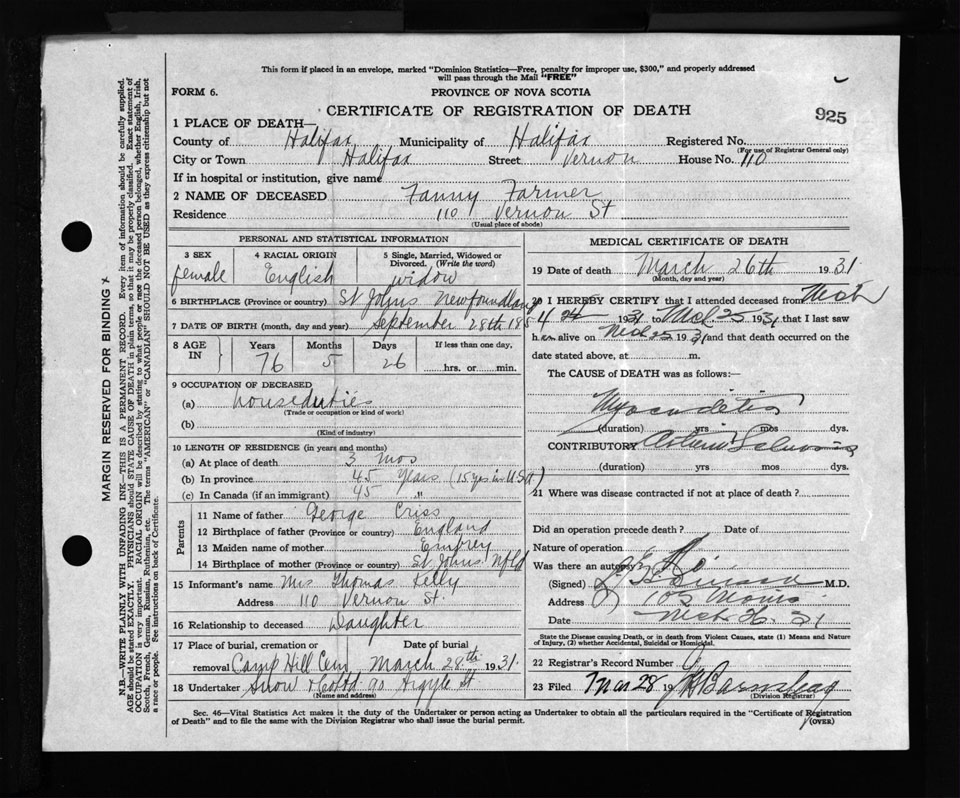 This form if placed in an envelope, marked "Dominion Statistics—Free, penalty for improper use, $300," and properly addressed
will pass through the Mail "FREE"
FORM 6. PROVINCE OF NOVA SCOTIA
CERTIFICATE OF REGISTRATION OF DEATH 925
1 PLACE OF DEATH—
County of Halifax Municipality of Halifax Registered No.
(For use of Registrar General only)
City or Town Halifax Street Vernon House No. 110
If in hospital or institution, give name
2 NAME OF DECEASED Fanny Farmer
Residence 110 Vernon St
(Usual place of abode)
PERSONAL AND STATISTICAL INFORMATION
3 SEX 4 RACIAL ORIGIN 5 Single, Married, Widowed or
Divorced. (Write the word)
female English widow
6 BIRTHPLACE (Province or country) St Johns Newfoundland
7 DATE OF BIRTH (month, day and year) September 28th 1854
8 AGE IN Years Months Days If less than one day,
76 5 26 hrs. or min.
9 OCCUPATION OF DECEASED
(a) houseduties
(Trade or occupation or kind of work)
(b)
(Kind of industry)
10 LENGTH OF RESIDENCE (in years and months)
(a) At place of death 3 mos
(b) In province 45 years (15 yrs in USA)
(c) In Canada (if an immigrant) 45 "
Parents
11 Name of father George Criss
12 Birthplace of father (Province or country) England
13 Maiden name of mother Embrey
14 Birthplace of mother (Province or country) St Johns Nfld
15 Informant's name Mrs Thomas Kelly
Address 110 Vernon St.
16 Relationship to deceased Daughter
17 Place of burial, cremation or Date of burial
removal Camp Hill Cem March 28th 1931
18 Undertaker Snow & Co Ltd 90 Argyle St
(Name and address)
MEDICAL CERTIFICATE OF DEATH
19 Date of death March 26th 1931
(Month, day and year)
20 I HEREBY CERTIFY that I attended deceased from Mch
24 1931 to Mch 25 1931 that I last saw
h er alive on Mch 25 1931 and that death occurred on the
date stated above, at m.
The CAUSE of DEATH was as follows:
Myocarditis
(duration) yrs mos dys.
CONTRIBUTORY
(duration) yrs mos dys.
21 Where was disease contracted if not at place of death?
Did an operation precede death? Date of
Nature of operation
Was there an autopsy?
(Signed) M.D.
Address 105 Morris
Date Mch 26. 31
State the Disease causing Death, or in death from Violent Causes, state (1) Means and Nature
of Injury, (2) whether Accidental, Suicidal or Homicidal.
22 Registrar's Record Number
23 Filed Mar 28 19 Barnstead
(Division Registrar)
Sec. 46—Vital Statistics Act makes it the duty of the Undertaker or person acting as Undertaker to obtain all the particulars required in the "Certificate of Registration
of Death" and to file the same with the Division Registrar who shall issue the burial permit. (OVER)
MARGIN RESERVED FOR BINDING
N.B.—WRITE PLAINLY WITH UNFADING INK—THIS IS A PERMANENT RECORD. Every item of information should be carefully supplied.
AGE should be stated EXACTLY. PHYSICIANS should STATE CAUSE OF DEATH in plain terms, so that it may be properly classified. Exact statement of
OCCUPATION is very important. RACIAL ORIGIN will be described by stating to what people or race the deceased person belonged, whether English, Irish,
Scotch, French, German, Russian, Ruthenian, etc. The terms "AMERICAN" or "CANADIAN" SHOULD NOT BE USED as they express citizenship but not
a race or people. See instructions on back of Certificate.